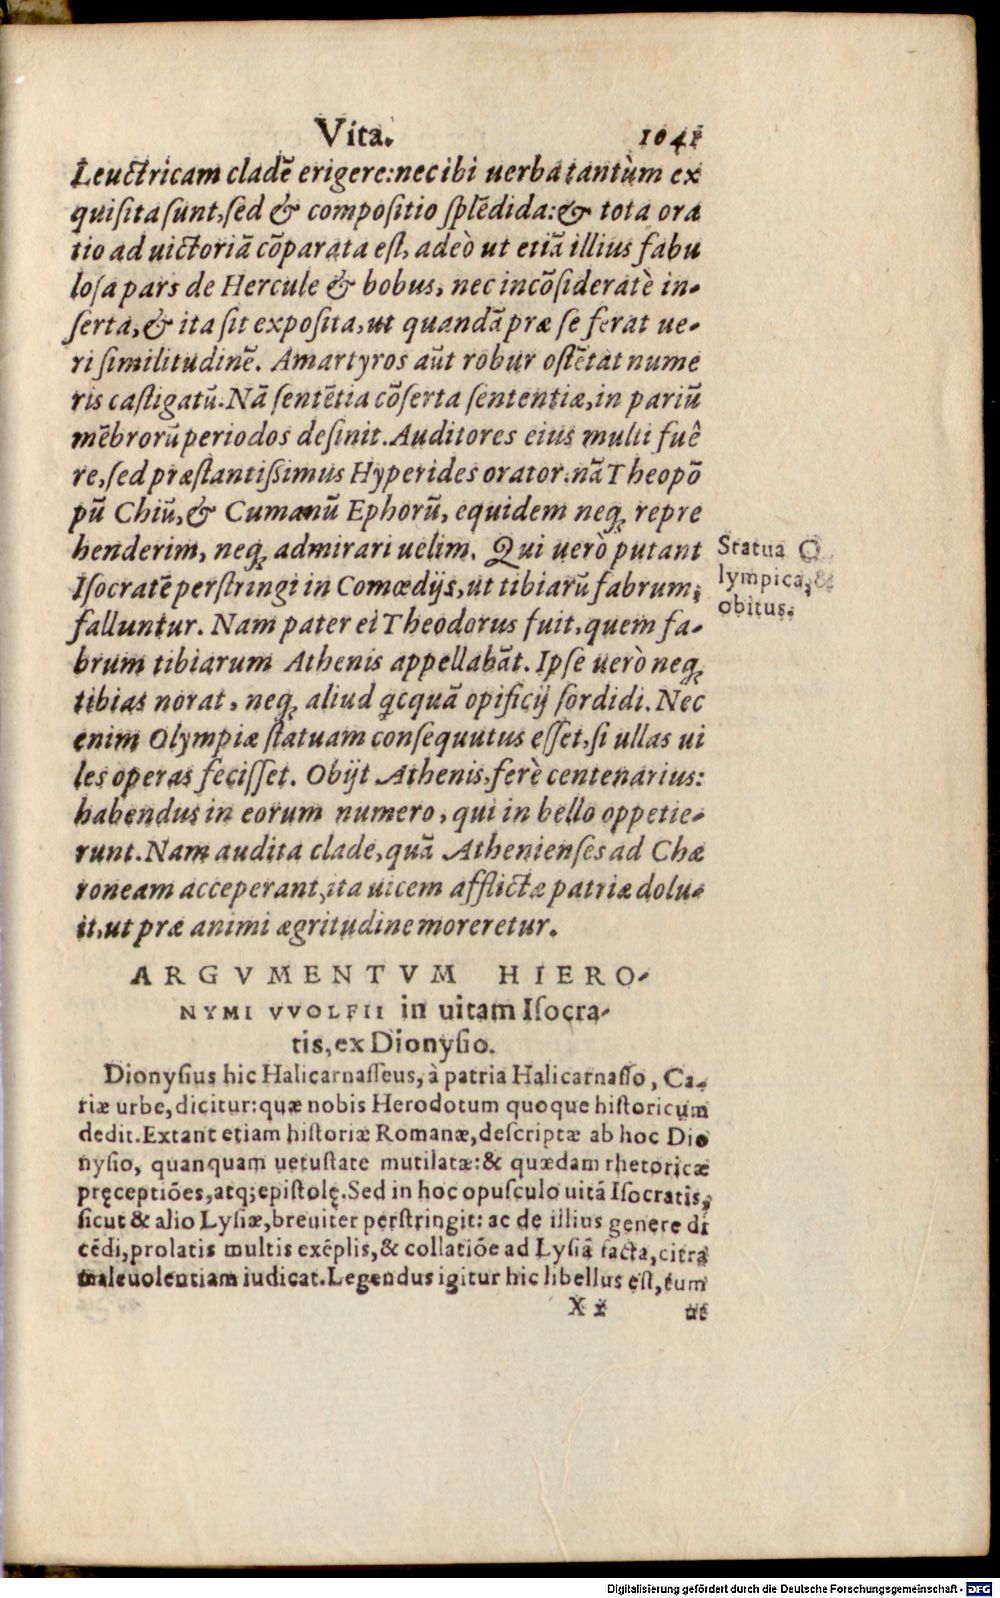 Vita. 1041
Leuctricam cladē erigere: nec ibi uerba tantùm ex
quiſita ſunt, ſed & compoſitio ſplēdida: & tota ora
tio ad uictoriā cōparata eſt, adeò ut etiā illius fabu
loſa pars de Hercule & bobus, nec incōſideratè in-
ſerta, & ita ſit expoſita, ut quandā præ ſe ferat ue-
ri ſimilitudinē. Amartyros aūt robur oſtētat nume
ris caſtigatū. Nā ſentētia cōſerta ſententiæ, in pariū
mēbrorū periodos deſinit. Auditores eius multi fuê
re, ſed præſtantiſsimus Hyperides orator: nā Theopō
pū Chiū, & Cumanū Ephorū, equidem neqꝫ repre
henderim, neqꝫ admirari uelim. Qui uerò putant
Iſocratē perſtringi in Comœdijs, ut tibiarū fabrum,
falluntur. Nam pater ei Theodorus fuit, quem fa-
brum tibiarum Athenis appellabāt. Ipſe uerò neqꝫ
tibias norat, neqꝫ aliud qͥcquā opificij ſordidi. Nec
enim Olympiæ ſtatuam conſequutus eſſet, ſi ullas ui
les operas feciſſet. Obijt Athenis, ferè centenarius:
habendus in eorum numero, qui in bello oppetie-
runt. Nam audita clade, quā Athenienſes ad Chæ
roneam acceperant, ita uicem afflictæ patriæ dolu-
it, ut præ animi ægritudine moreretur.
Statua O
lympica, &
obitus.
ARGVMENTVM HIERO-
NYMI VVOLFII in uitam Iſocra-
tis, ex Dionyſio.
Dionyſius hic Halicarnaſſeus, à patria Halicarnaſſo, Ca-
riæ urbe, dicitur: quæ nobis Herodotum quoque hiſtoricum
dedit. Extant etiam hiſtoriæ Romanæ, deſcriptæ ab hoc Dio
nyſio, quanquam uetuſtate mutilatæ: & quædam rhetoricæ
pręceptiões, atq; epiſtolę. Sed in hoc opuſculo uitā Iſocratis,
ſicut & alio Lyſiæ, breuiter perſtringit: ac de illius genere di
cēdi, prolatis multis exēplis, & collatiōe ad Lyſiā facta, citra
maleuolentiam iudicat. Legendus igitur hic libellus eſt, tum
X x ut
Digitalisierung gefördert durch die Deutsche Forschungsgemeinschaft - DFG